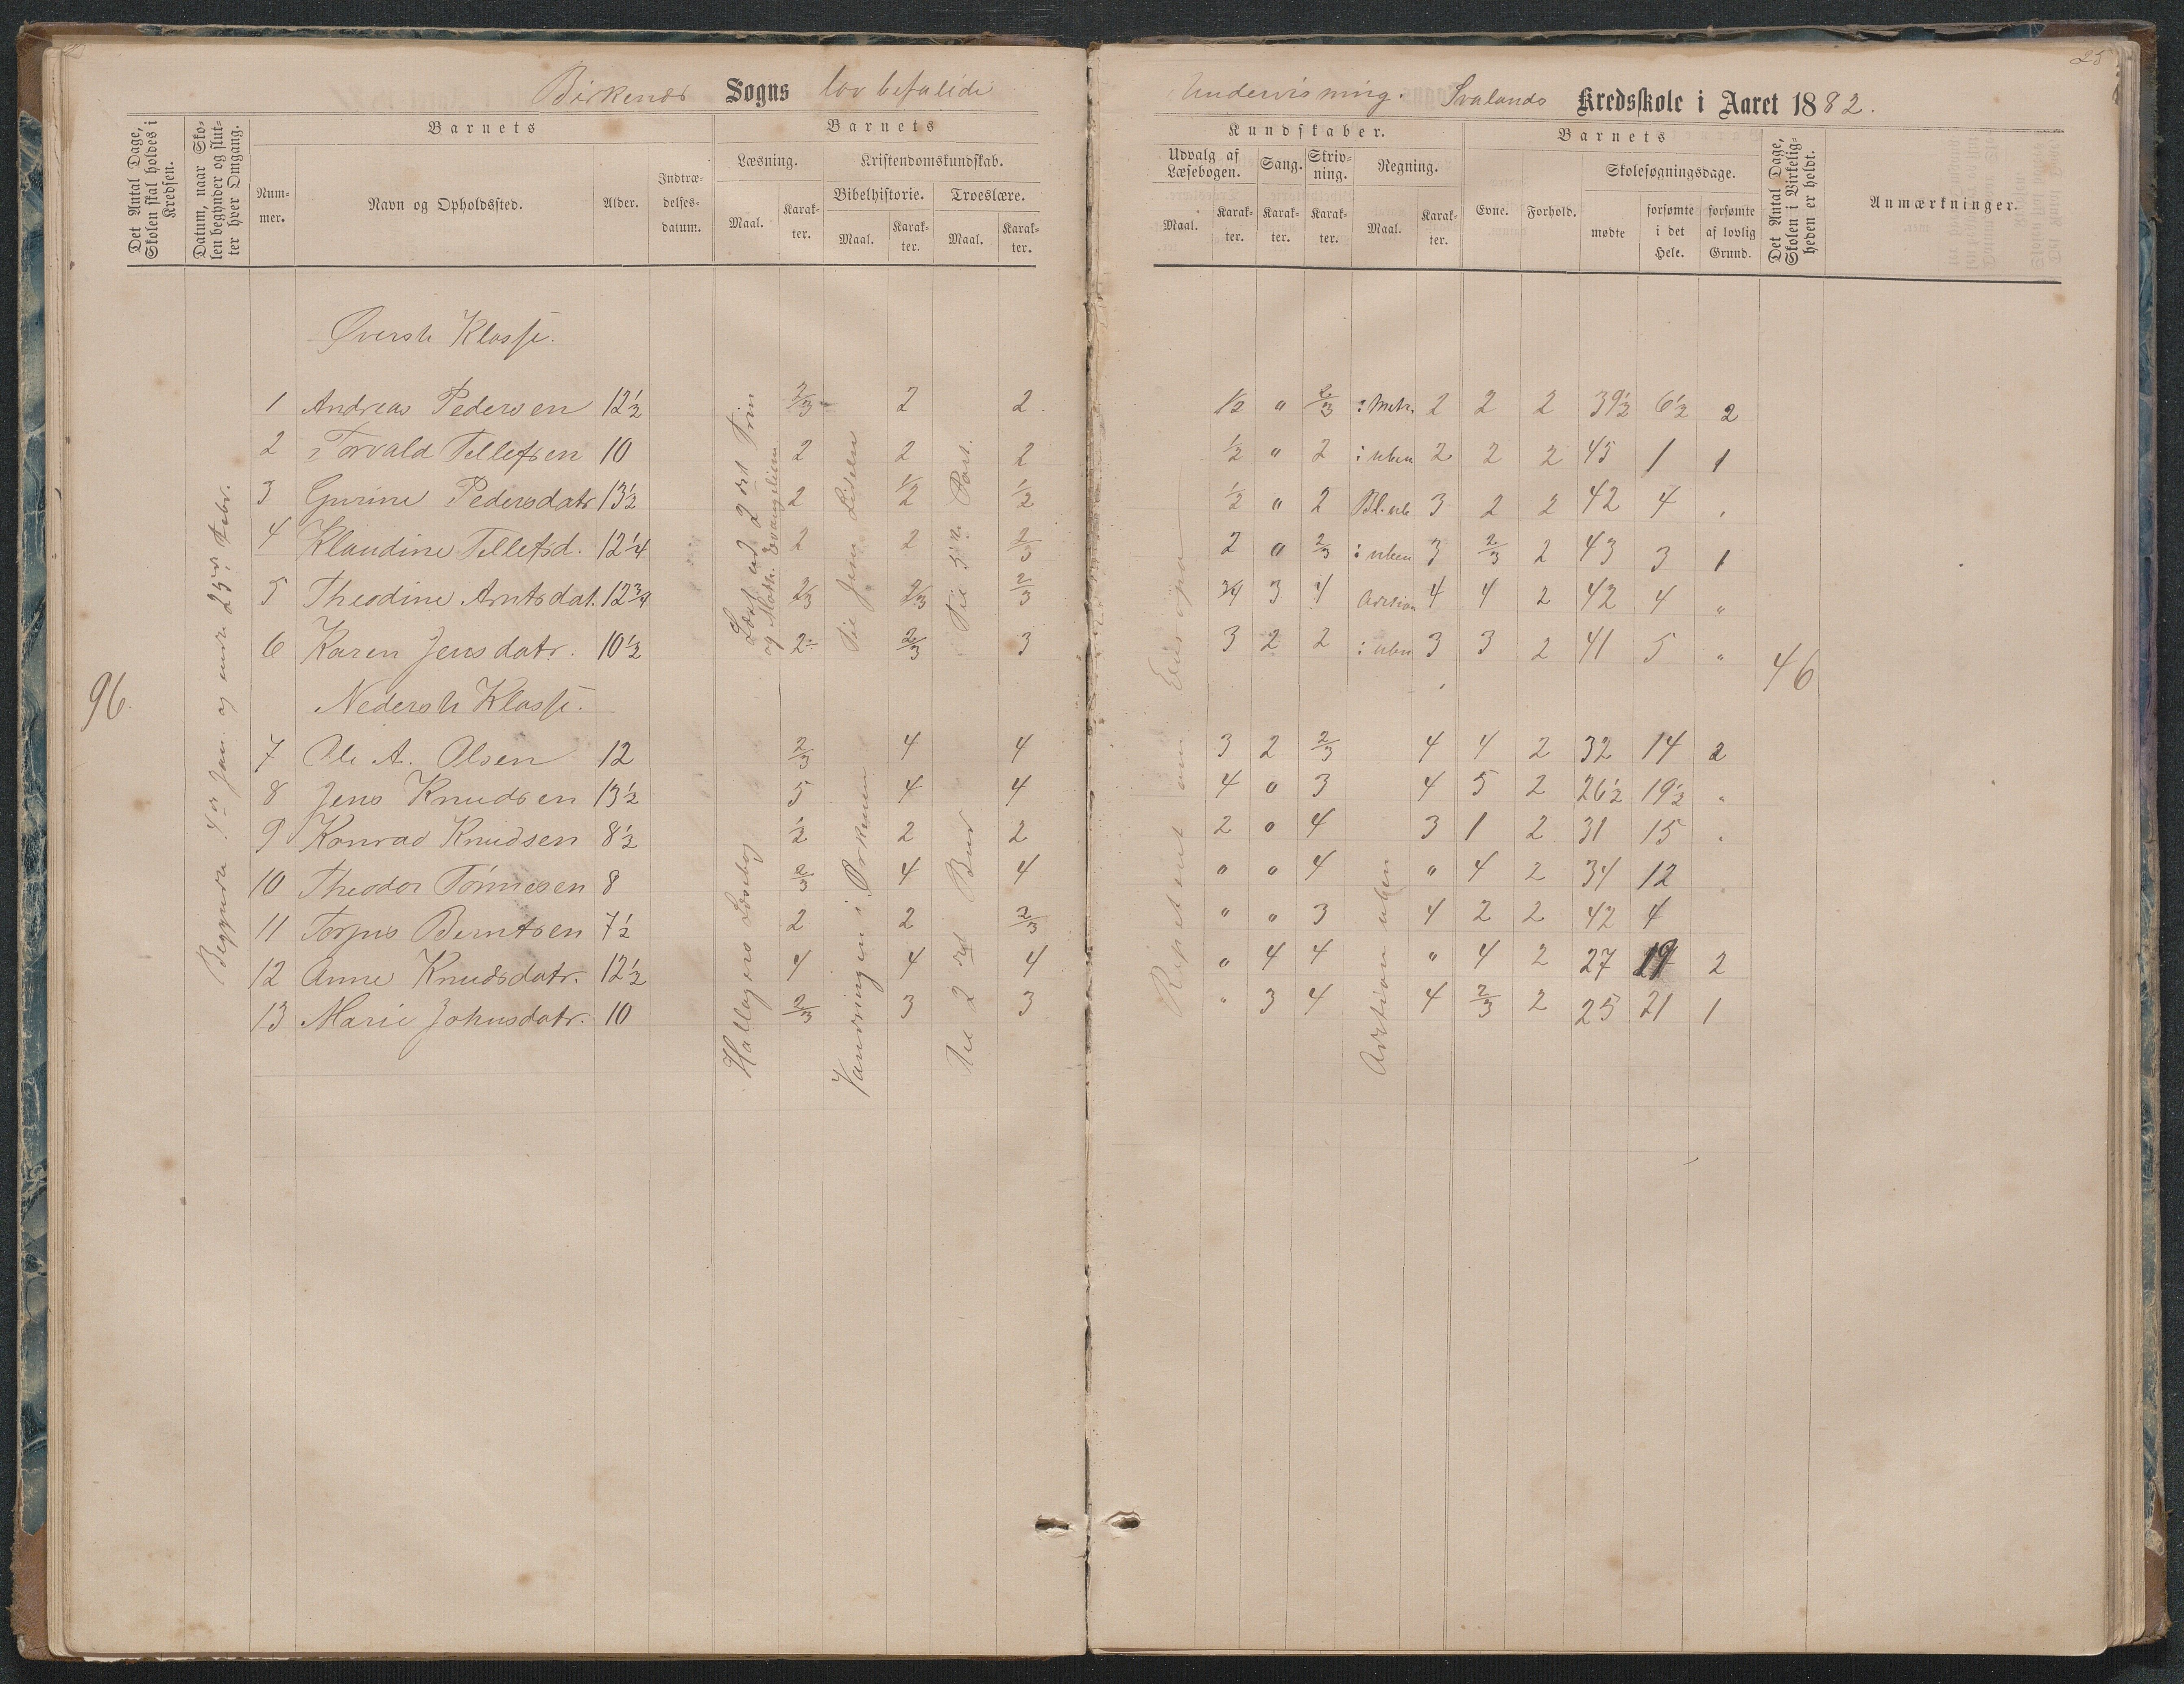 25
Birkenes Sogns lovbefalede
Undervisning. Svalands Kredsskole i Aaret 1882.
Det Antal Dage, Skolen skal holdes i Kredsen.
Datum, naar Skolen begynder og slutter hver Omgang.
Barnets
Nummer.
Navn og Opholdssted.
Alder.
Indtrædelsesdatum.
Barnets
Læsning.
Maal.
Karakter.
Kristendomskundskab.
Bibelhistorie.
Maal.
Karakter.
Troeslære.
Maal.
Karakter.
Kundskaber.
Udvalg af Læsebogen.
Maal.
Karakter.
Sang.
Karakter.
Skrivning.
Karakter.
Regning.
Maal.
Karakter.
Barnets
Evne.
Forhold.
Skolesøgningsdage.
mødte
forsømte i det Hele.
forsømte af lovlig Grund.
Det Antal Dage, Skolen i Virkeligheden er holdt.
Anmærkninger.
96.
Øverste Klasse.
1 Andreas Pedersen 12½ 2/3 2 2 ½ " 2/3 2 2 2 39½ 6½ 2
2 Torvald Tellefsen 10 2 2 2 ½ " 2 : uben 2 2 2 45 1 1
3 Gurine Pedersdatr 13½ 2 ½ ½ ½ " 2 3 2 2 42 4 "
4 Klaudine Tellefsd. 12¼ 2 2 2/3 2 " 2/3 : uben 3 2/3 2 43 3 1
5 Theodine Arntsdat. 12¾ 2/3 2/3 2/3 3/4 3 4 Addition 4 4 2 42 4 "
6 Karen Jensdatr. 10½ 2 2/3 3 3 2 2 : uben 3 3 2 41 5 "
46
Nederste Klasse.
7 Ole A. Olsen 12 2/3 4 4 3 2 2/3 4 4 2 32 14 2
8 Jens Knudsen 13½ 5 4 4 4 0 3 4 5 2 26½ 19½ "
9 Konrad Knudsen 8½ ½ 2 2 2 0 4 3 1 2 31 15 "
10 Theodor Tönnesen 8 2/3 4 4 " 0 4 " 4 2 34 12
11 Torjus Berntsen 7½ 2 2 2/3 " " 3 4 2 2 42 4
12 Anne Knudsdatr. 12½ 4 4 4 " 4 4 " 4 2 27 19 2
13 Marie Johnsdatr. 10 2/3 3 3 " 3 4 4 2/3 2 25 21 1
Læst ud 2det Trin
og Math. Evangelium
Til Jesu Lidelse
Til 5te Part.
Hallagers Læsebog
Vandringen i Ørkenen
Til 2det Bud
Repeteret om Europa
Addition uben